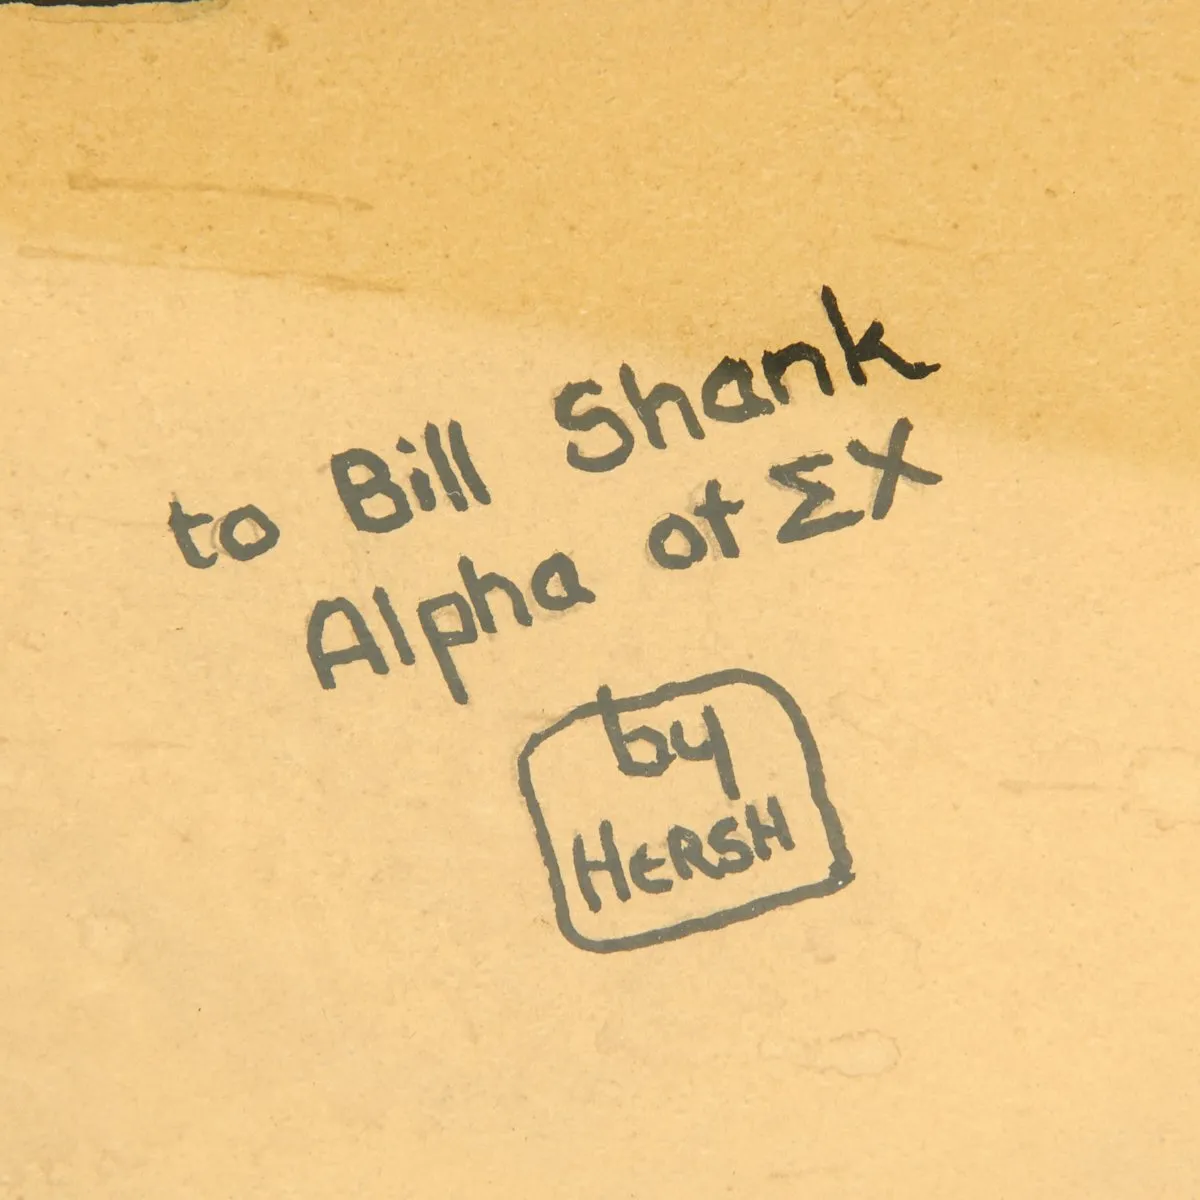 to Bill Shank
Alpha of ΣΧ
by
HERSH